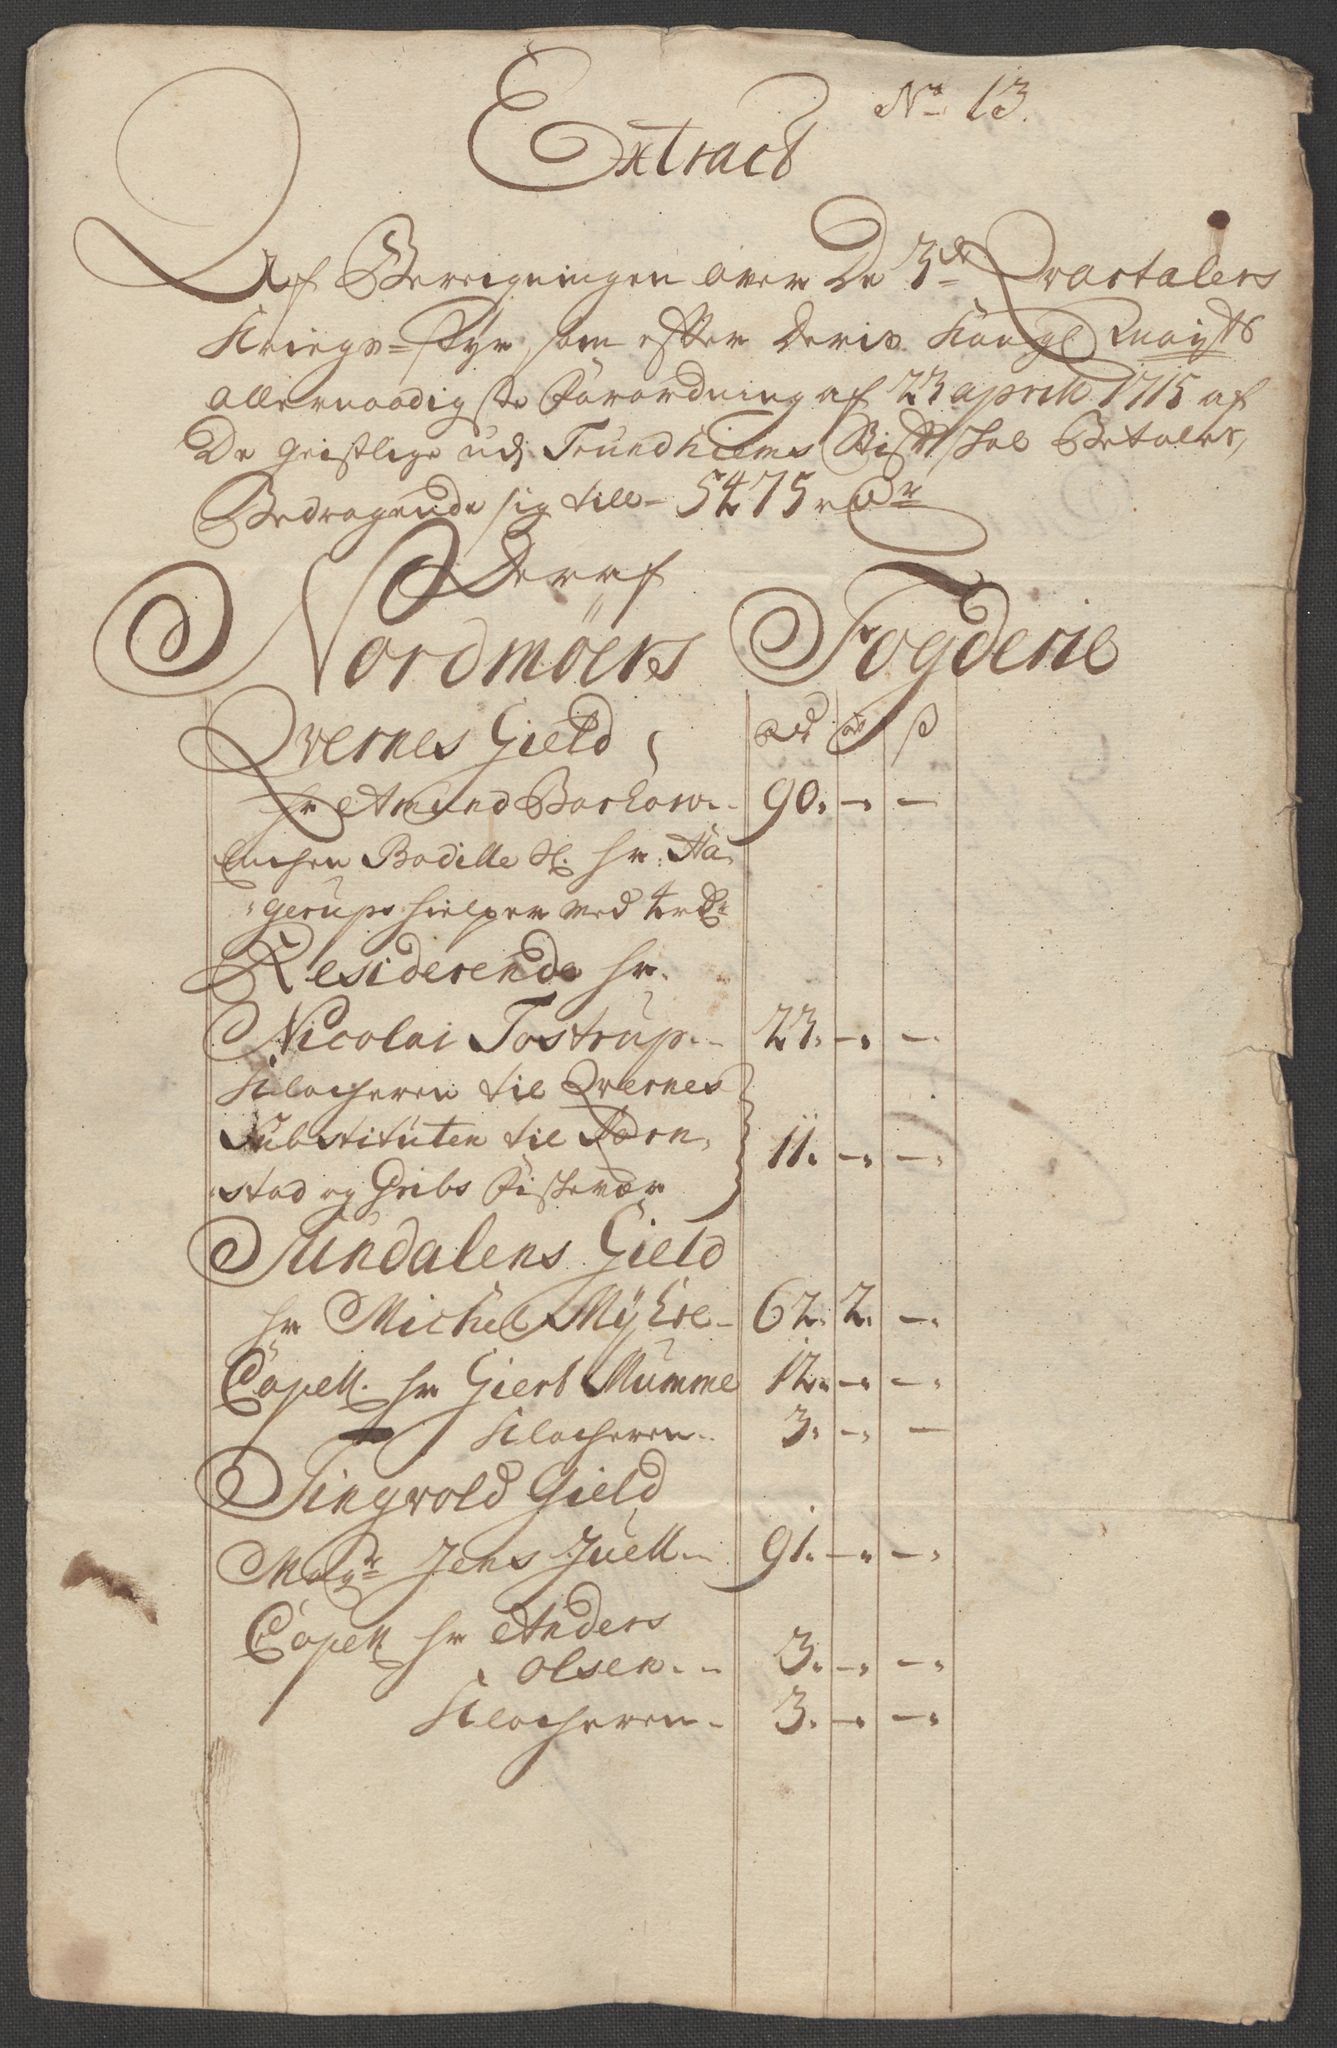 No 13.
Extract
Af Bereigningen over De 3de Qvartalers
Kriegs-Styr, som efter Deris Kongl Mayts
allernaadigste Forordning af 23 aprili 1715 af
De geistlige udj Trundhiems Stift skal Betales,
Bedragende sig till 5475 rdr
Deraf
Nordmöers Fogderie
Qvernes Gield
hr Amund Barhow 90. - -
Enchen Bodille Sl. hr. Ha-
gerups hielper med 4 rdr
Residerende hr.
Nicolai Tostrup 23. - -
Klocheren til Qvernes
Substituten til
stad og Gribs Fischevær 11. - -
Sundalens Gield
hr Michel Myhre 62. 2. -
Capell. hr Giert Mumme 12. - -
Klocheren 3. - -
Tingvold Gield
Magr Jens Juell 91. - -
Capell hr Anders
Olsen 3. - -
Klocheren 3. - -